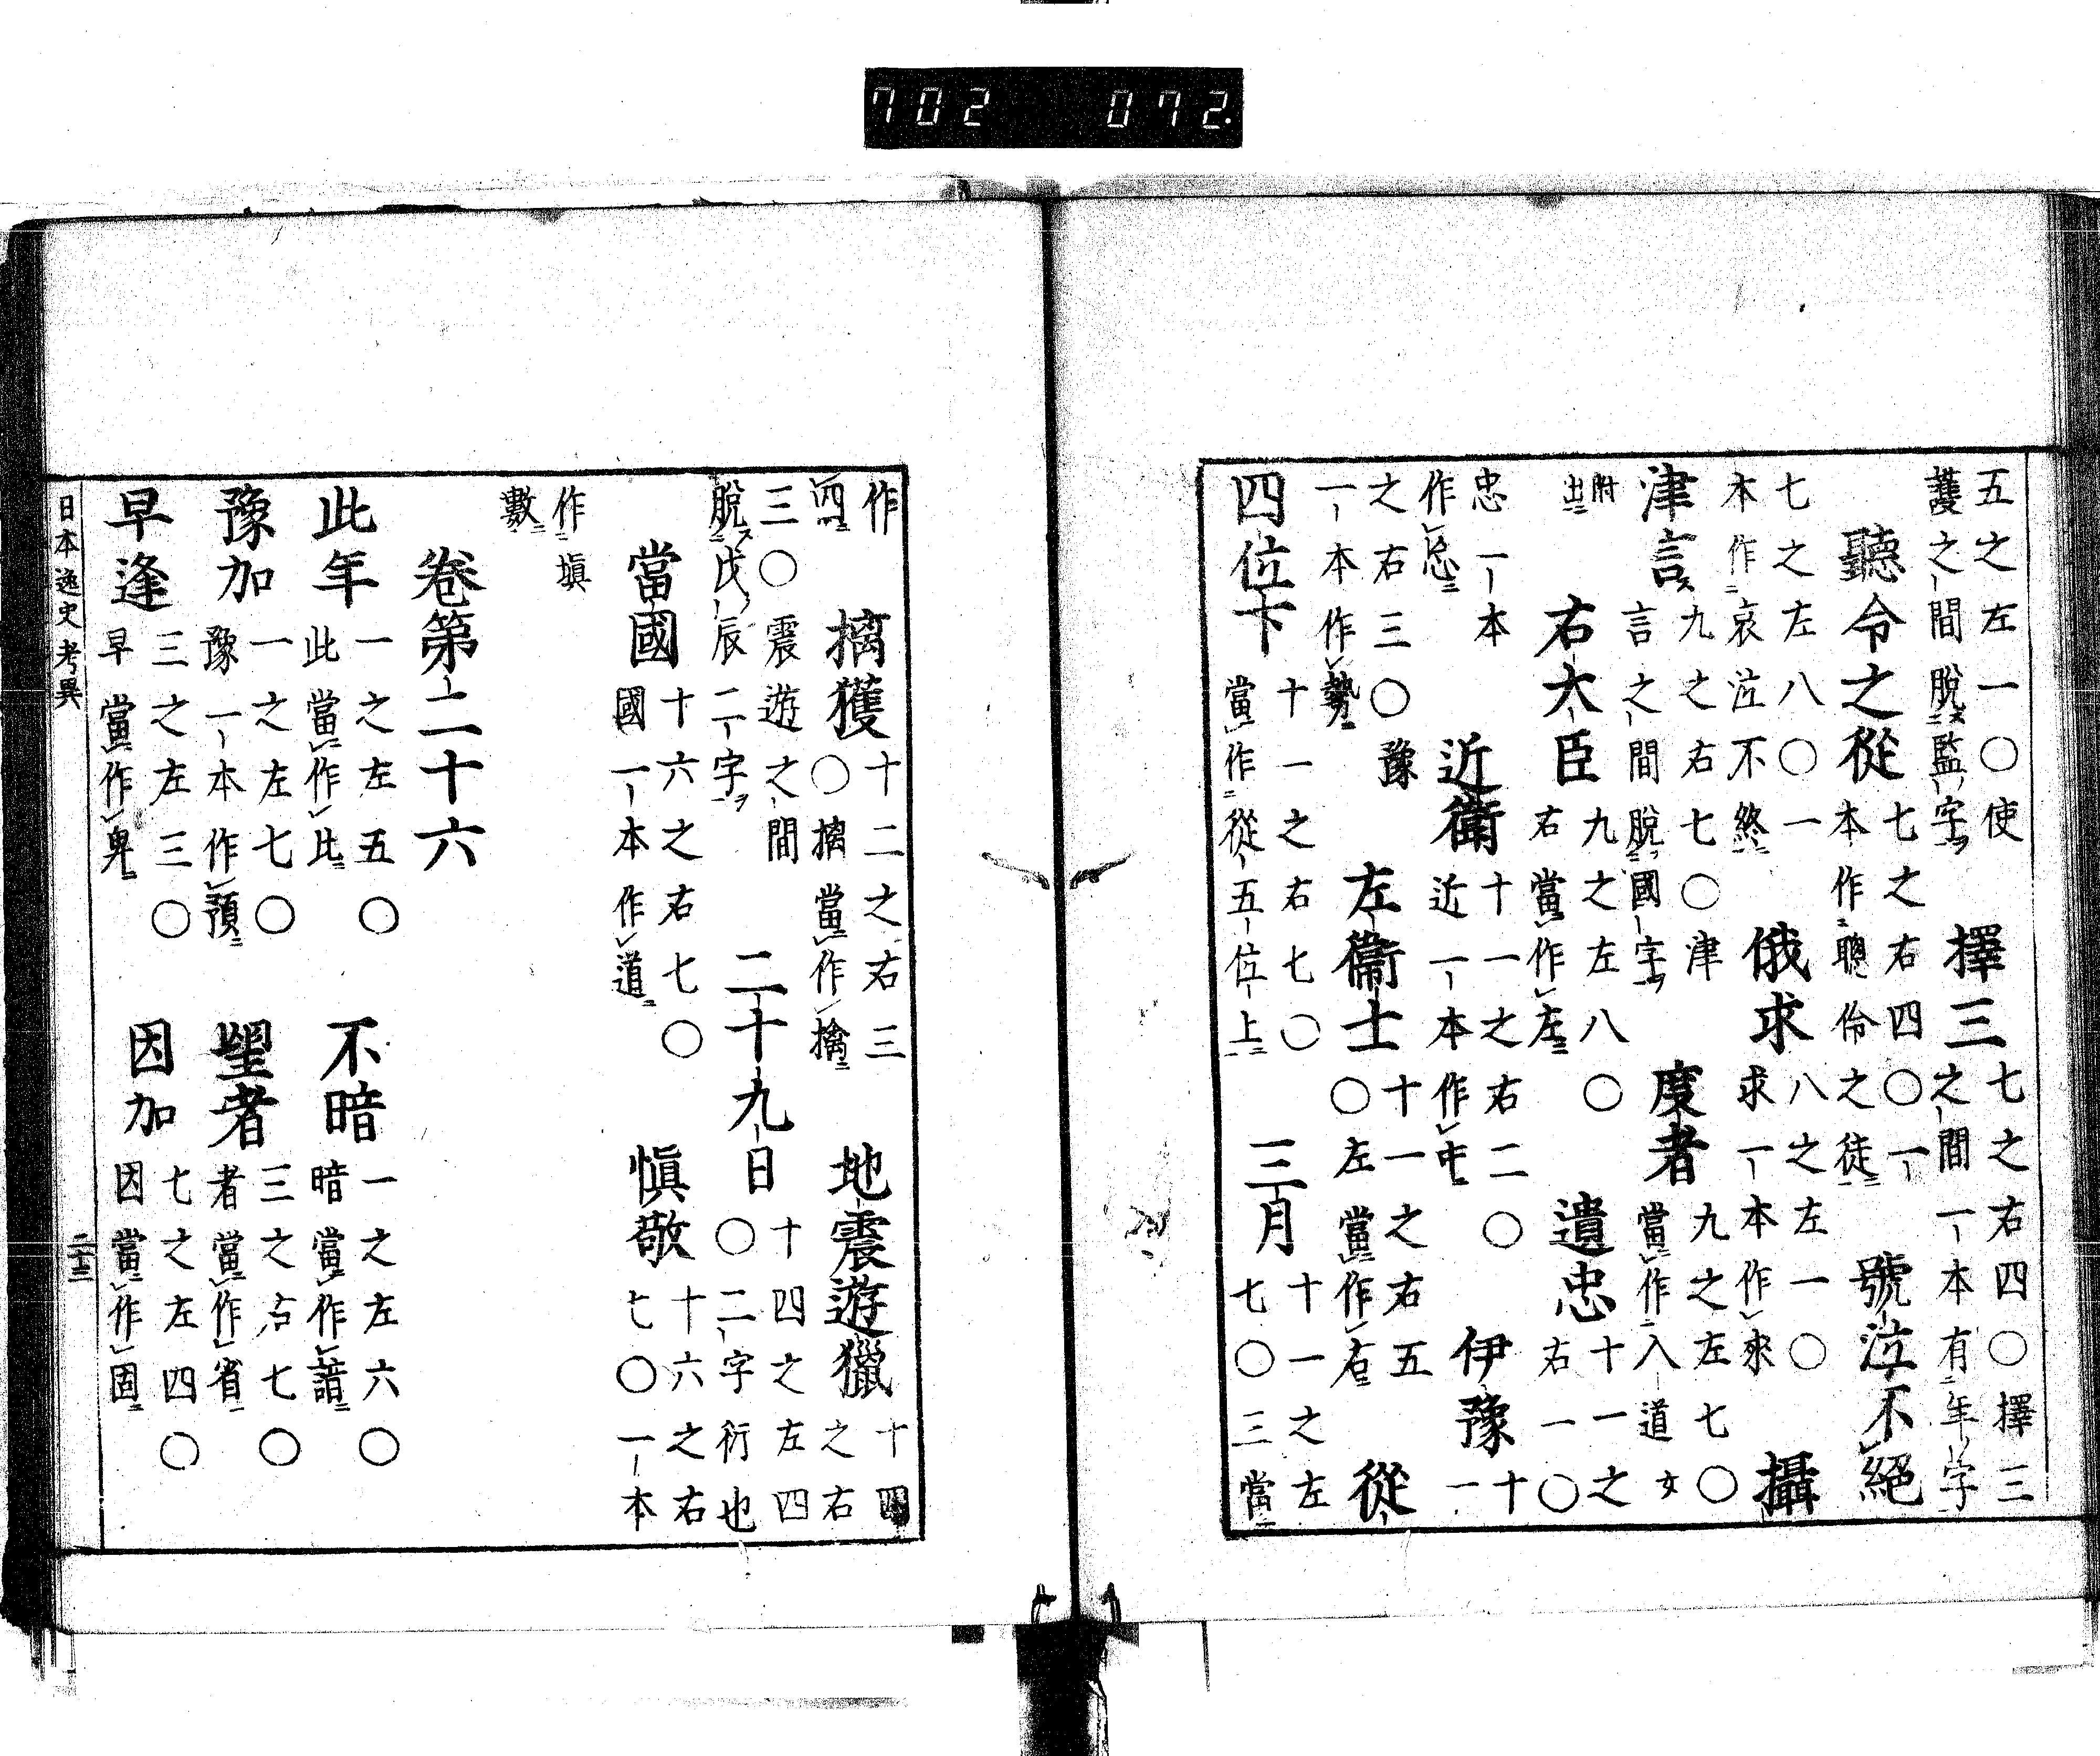 五之左一〇使
護之間脱監字
擇三
七之右四〇擇三
之間一本有年字
聽令之從
七之右四〇一
本作聰伶之徒
號泣不絕
七之左八〇一
本作哀泣不終
俄求
八之左一〇
求一本作來
攝
津言
九之右七〇津
言之間脱國字
度者
九之左七〇
當作入道女
附
出
右大臣
九之左八〇
右當作左
遺忠
十一之
右一〇
忠一本
作忽
近衛
十一之右二〇
近一本作屯
伊豫
十
一
之右三〇豫
一本作勢
左衞士
十一之右五
〇左當作右
從
四位下
十一之右七〇
當作從五位上
三月
十一之左
七〇三當
作
四
摛獲
十二之右三
〇摛當作擒
地震遊獵
十四
之右
三〇震遊之間
脱戊辰二字
二十九日
十四之左四
〇二字衍也
當國
十六之右七〇
國一本作道
愼敬
十六之右
七〇一本
作塡
數
卷第二十六
此年
一之左五〇
此當作比
不暗
一之左六〇
暗當作諳
豫加
一之左七〇
豫一本作預
望者
三之右七〇
者當作省
早逢
三之左三〇
早當作
因加
七之左四〇
因當作固
日本逸史考異
二十三
702 072.